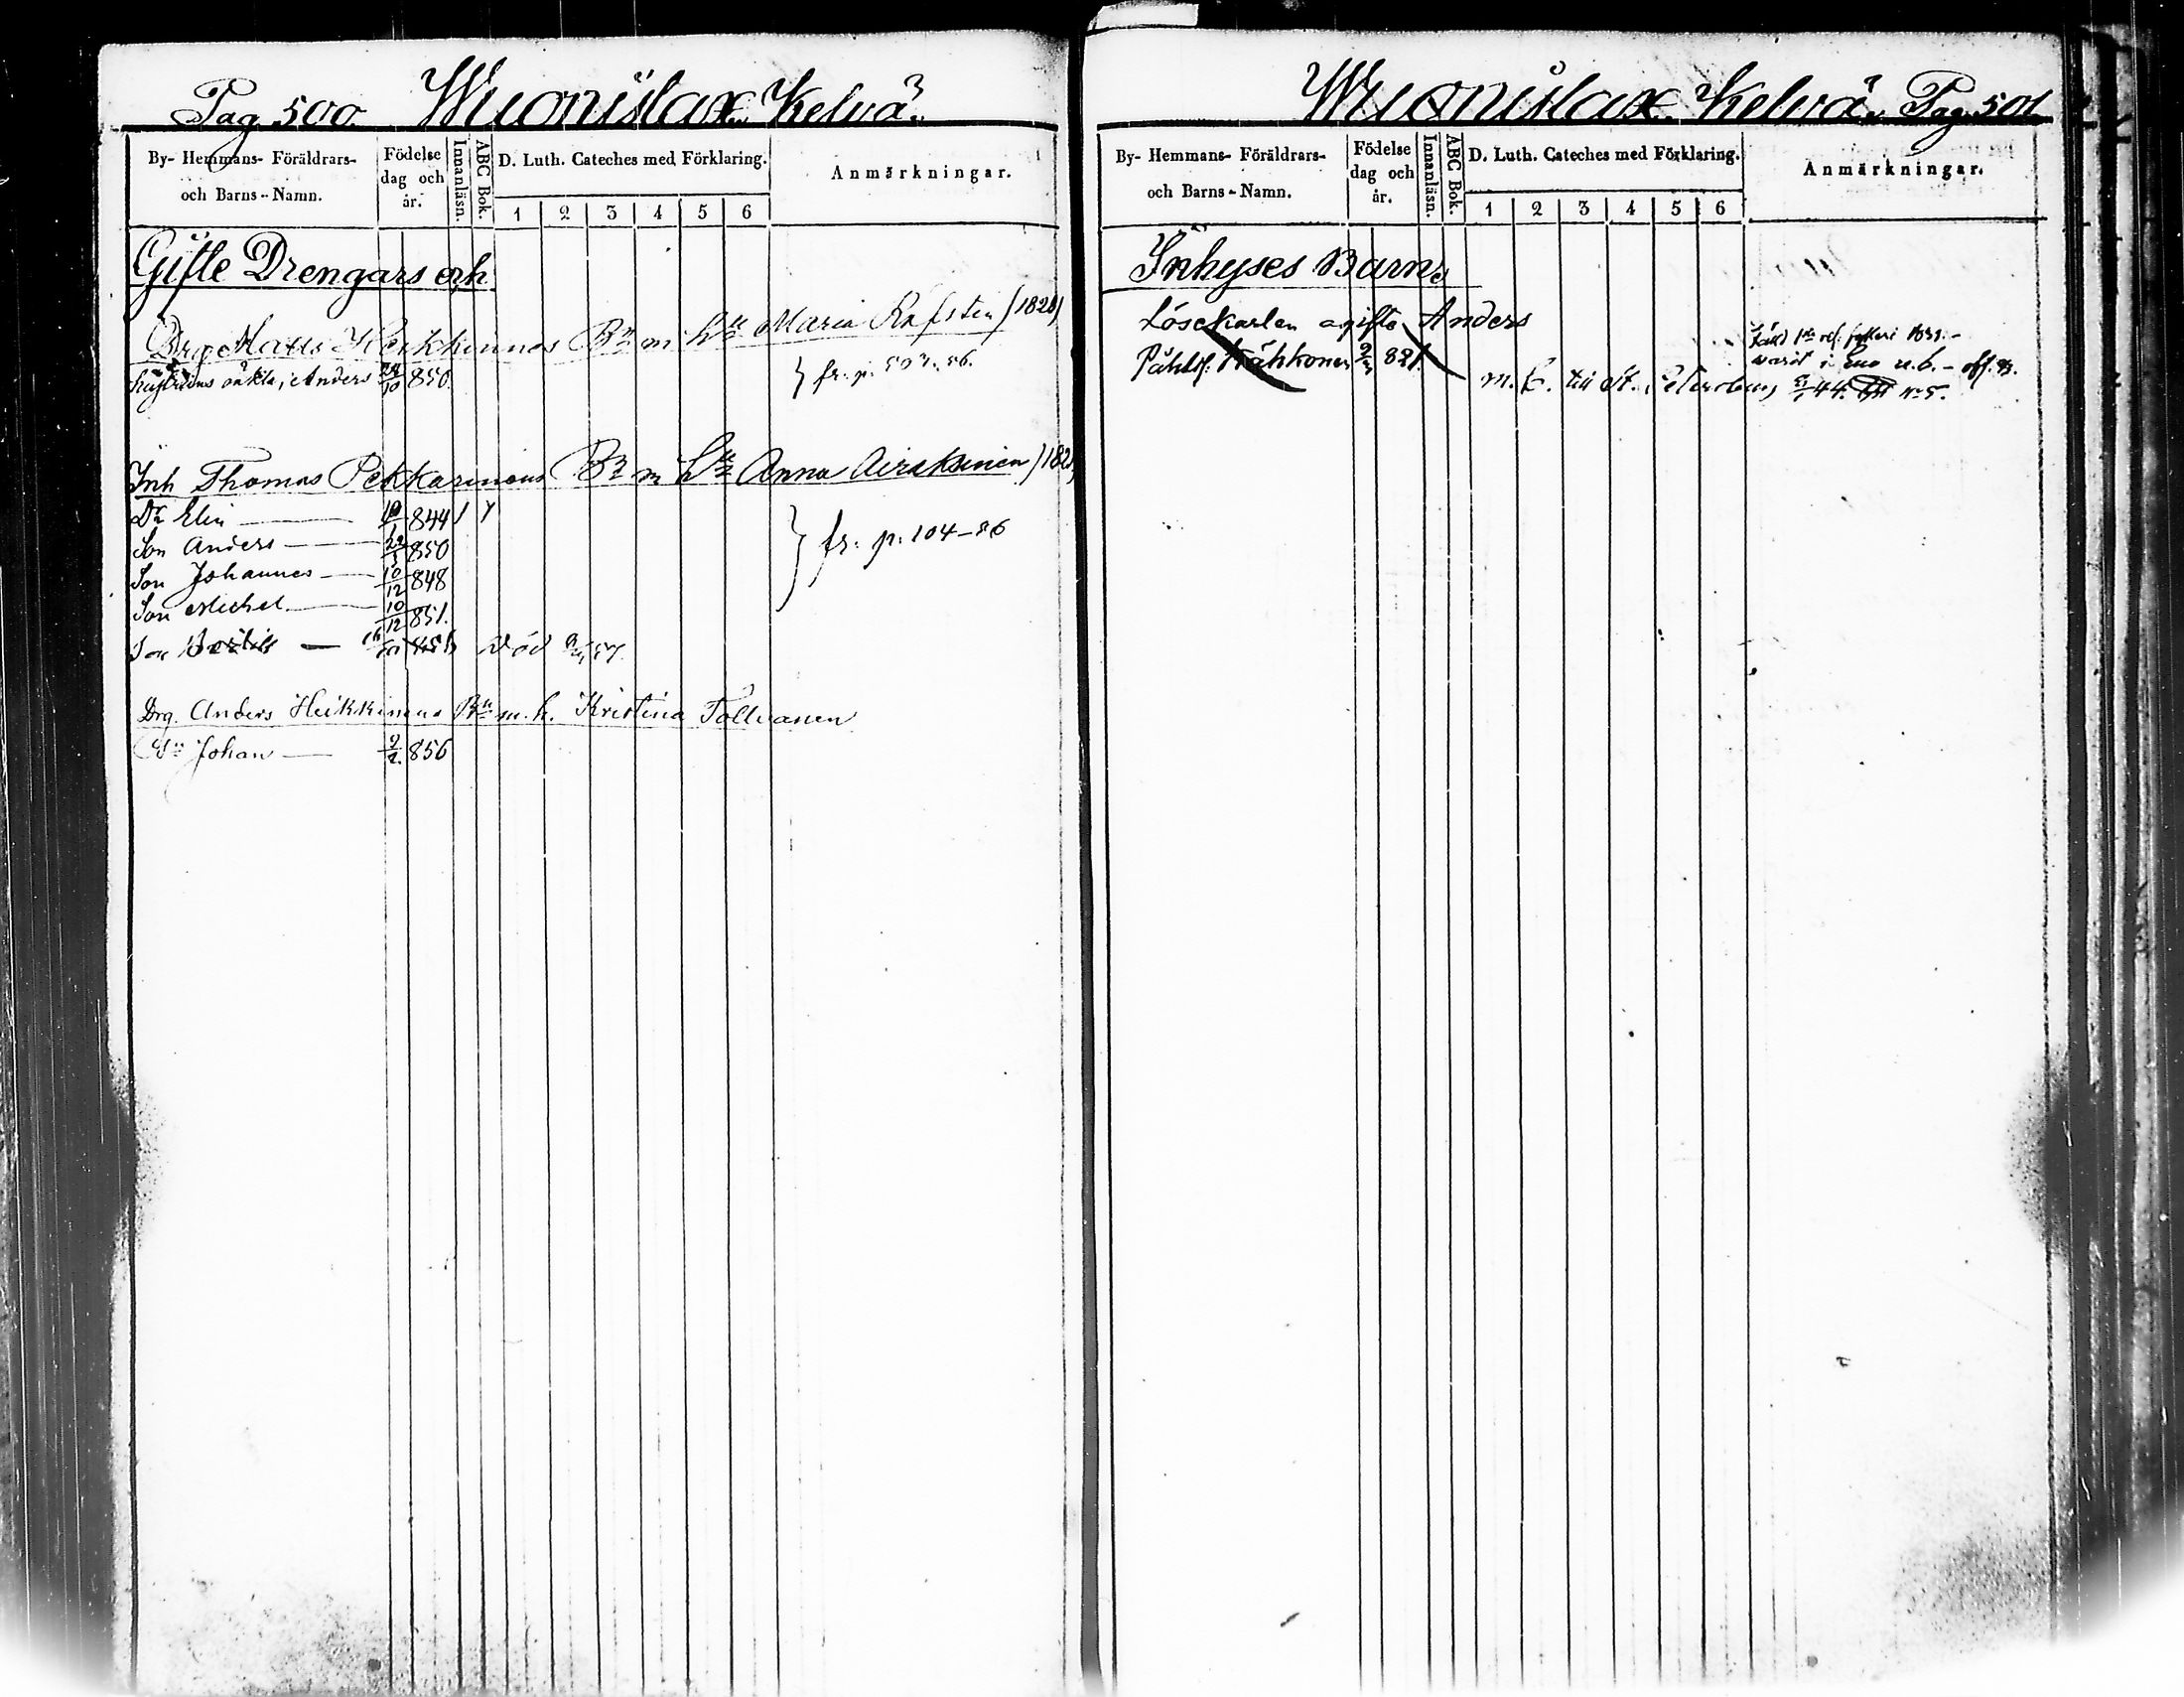 Pag. 500. Wuonislax Kelvä.
By- Hemmans- Föräldrars- och Barns-Namn.
Födelse dag och år.
Innanläsn.
ABC Bok.
D. Luth. Cateches med Förklaring.
1 2 3 4 5 6
Anmärkningar.
Gifte Drengars och
Drg Matts Heikkinens Bn m hu Maria Rafsten (1828)
hustruns oäkta; Anders 10 850. } fr. p. 503.56.
Inh Thomas Pekkarinens Bn m hu Anna Airaksinen
Dr Elin — 844
Son Anders — 850 } fr: p: 104-86
Son Johannes — 10/12 848
Son Michel — 10/12 851.
Son Bertil — Död 57.
Drg. Anders Heikkinens Bn m. h. Kristina Tolvanen
Sn Johan — 856
Wuonislax Kelvä. Pag. 501.
By- Hemmans- Föräldrars- och Barns-Namn.
Födelse dag och år.
Innanläsn.
ABC Bok.
D. Luth. Cateches med Förklaring.
1 2 3 4 5 6
Anmärkningar.
Inhyses Barn.
Lösekarlen ogifte Anders
Påhlsf. Kähkonen 821.
varit i Eno u.b.
m. till St. Petersburg 44. no 5.